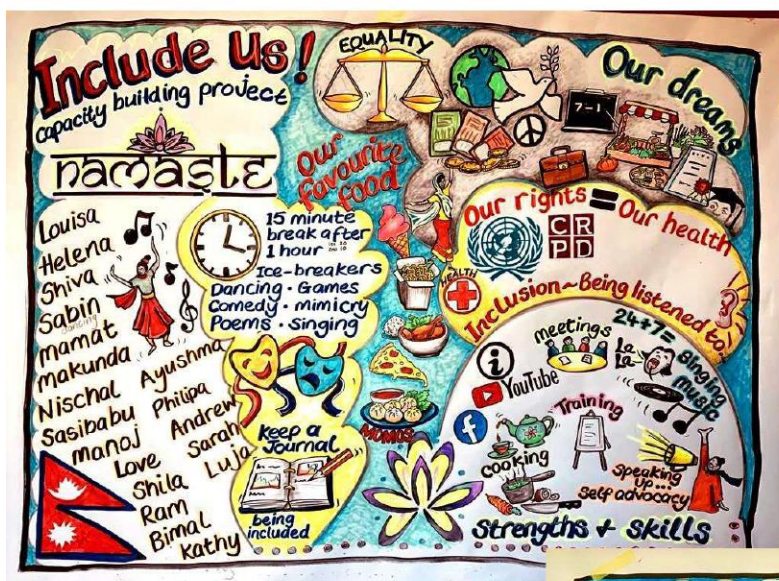 Include Us!
capacity building project
namaste
Louisa
Helena
Shiva
Sabin
dancing
mamat
makunda
Nischal
Sasibabu
manoj
Ayushma
Philipa
Andrew
Sarah
Luja
Love
Shila
Ram
Bimal
Kathy
15 minute
break after
1 hour
Ice-breakers
Dancing · Games
Comedy · mimicry
Poems · singing
Keep a
Journal
being
included
Our
favourite
food
MOMOS
EQUALITY
Our dreams
7-1
Our rights = Our health
CR
PD
HEALTH
Inclusion ~ Being listened to
i
YouTube
f
meetings
24+7=
La
La
singing
music
Training
cooking
Speaking
up...
Self advocacy
Strengths + skills